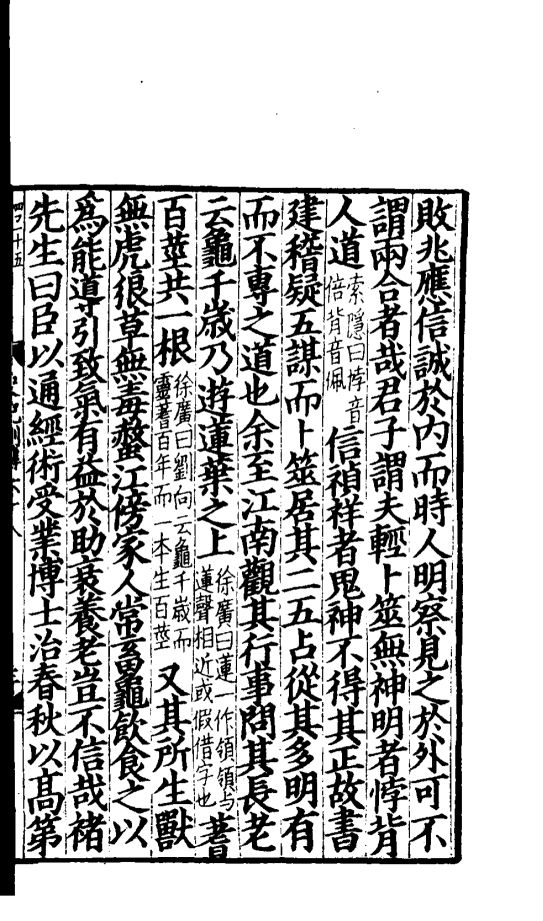 敗兆應信誠於內而時人明察見之於外可不
謂兩合者哉君子謂夫輕卜筮無神明者悖背
人道索隱曰悖音倍背音佩信禎祥者鬼神不得其正故書
建稽疑五謀而卜筮居其二五占從其多明有
而不專之道也余至江南觀其行事問其長老
云龜千歲乃遊蓮葉之上徐廣曰蓮一作領領与蓮聲相近或假借字也蓍
百莖共一根徐廣曰劉向云龜千歲而靈蓍百年而一本生百莖又其所生獸
無虎狼草無毒螫江傍家人常畜龜飲食之以
為能導引致氣有益於助衰養老豈不信哉褚
先生曰臣以通經術受業博士治春秋以高第
四百十五